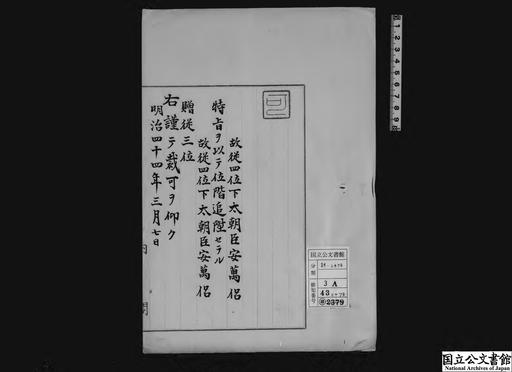 可
故従四位下太朝臣安萬侶
特旨ヲ以テ位階追陞セラル
故従四位下太朝臣安萬侶
贈従三位
右謹テ裁可ヲ仰ク
明治四十四年三月七日
内閣
国立公文書館
分類
排架番号
3 A
2379
1 2 3 4 5 6 7 8 9
国立公文書館
National Archives of Japan